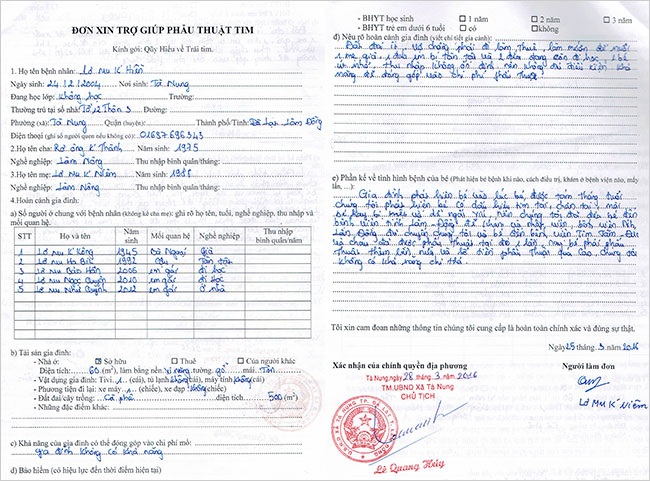 ĐƠN XIN TRỢ GIÚP PHẪU THUẬT TIM
Kính gửi: Qũy Hiểu về Trái tim.
1. Họ tên bệnh nhân: Lơ Mu K' Hiền
Ngày sinh: 24/12/2004 Nơi sinh: Tà Nung
Đang học lớp: không học Trường:
Thường trú tại số nhà: Tổ 12 Thôn 3 Đường:
Phường (xã): Tà Nung Quận (huyện): Thành phố/Tỉnh: Đà Lạt Lâm Đồng
Điện thoại (ghi số người quen nếu không có): 01697696343
2. Họ tên cha: Rơ ông K Thành Năm sinh: 1975
Nghề nghiệp: Làm Nông Thu nhập bình quân/tháng:
3. Họ tên mẹ: Lơ Mu K Niêm Năm sinh: 1988
Nghề nghiệp: Làm Nông Thu nhập bình quân/tháng:
4. Hoàn cảnh gia đình:
a) Số người ở chung với bệnh nhân (không kê cha mẹ): ghi rõ họ tên, tuổi, nghề nghiệp, thu nhập và
mối quan hệ.
STT Họ và tên Năm sinh Mối quan hệ Nghề nghiệp Thu nhập bình quân/năm
1 Lơ Mu K' 1945 Bà Ngoại Già
2 Lơ Mu Ha 1992 Cậu Tàn tật
3 Lơ Mu Bảo Hân 2006 em gái đi học
4 Lơ Mu Ngọc Quyên 2010 em gái đi học
5 Lơ Mu Như Quỳnh 2012 em gái ở nhà
b) Tài sản gia đình:
- Nhà ở: Sở hữu Thuê Của người khác
Diện tích: 60 (m²), làm bằng nền xi măng, tường gỗ mái: Tôn
- Vật dụng gia đình: Tivi 1 (cái), tủ lạnh không (cái), máy tính không (cái)
- Phương tiện đi lại: xe máy 1 (chiếc), xe đạp không (chiếc)
- Đất đai/cây trồng: Cà phê diện tích: 500 (m²)
- Những đặc điểm khác:
c) Khả năng của gia đình có thể đóng góp vào chi phí mổ:
gia đình không có khả năng
d) Bảo hiểm (có hiệu lực đến thời điểm hiện tại)
- BHYT học sinh 1 năm 2 năm 3 năm
- BHYT trẻ em dưới 6 tuổi có không
đ) Nêu rõ hoàn cảnh gia đình (viết chi tiết gia cảnh):
Đất đai ít, vợ chồng phải đi làm thuê, làm mướn để nuôi
1 mẹ già, 1 đứa em bị tàn tật và 2 đứa đang còn đi học, 1 bé
út nhỏ. thu nhập không ổn định nên không đủ điều kiện khả
năng để đóng góp vào chi phí phẫu thuật.
e) Phần kể về tình hình bệnh của bé (Phát hiện bé bệnh khi nào, cách điều trị, khám ở bệnh viện nào, mấy
lần, ...):
Gia đình phát hiện bé vào lúc bé được tám tháng tuổi
chúng tôi phát hiện bé có dấu hiệu tím tái, chân tay, môi
bé hay bị mệt và dễ ngồi. Nên chúng tôi đã đưa bé đến
bệnh viện tỉnh Lâm Đồng để khám và nhập viện, bệnh viện tỉnh
Lâm Đồng đã chuyển chúng tôi và bé đến bệnh viện Tim Tâm Đức
và cháu đã được phẫu thuật tại đó 1 lần, nay bé phải phẫu
thuật thêm lần nữa và số tiền phẫu thuật quá cao. chúng tôi
không có khả năng chi trả.
Tôi xin cam đoan những thông tin chúng tôi cung cấp là hoàn toàn chính xác và đúng sự thật.
Ngày 25 tháng 3 năm 2016
Xác nhận của chính quyền địa phương
Tà Nung, ngày 28 tháng 3 năm 2016
TM.UBND XÃ TÀ NUNG
CHỦ TỊCH
Lê Quang Thủy
Người làm đơn
Lơ Mu K' Niêm